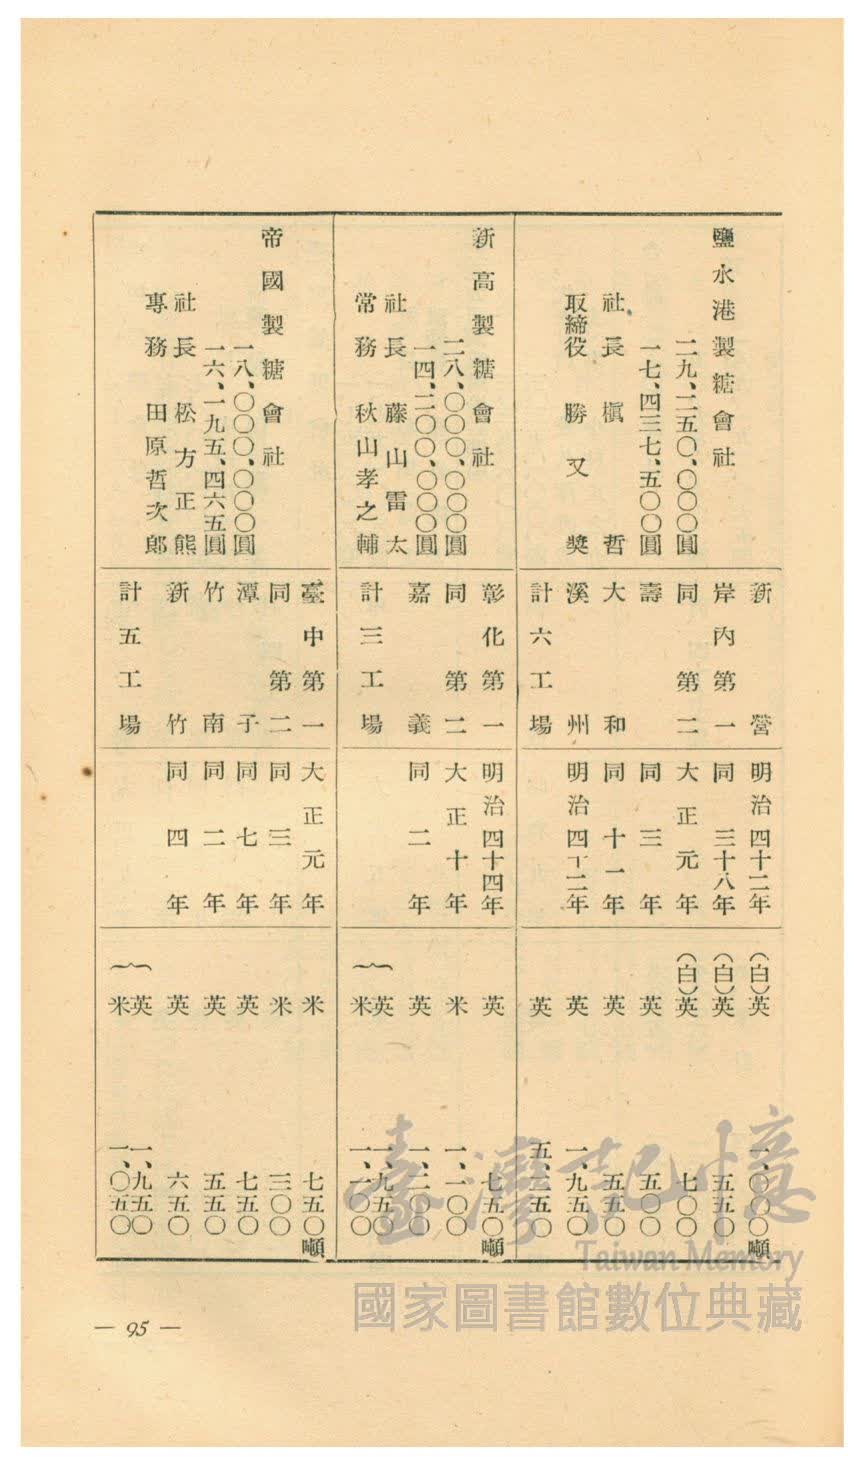 鹽水港製糖會社
二九、二五〇、〇〇〇圓
一七、四三七、五〇〇圓
社長 槇 哲
取締役 勝又 獎
新營 明治四十二年 (白)英 一、〇〇〇噸
岸內第一 同 三十八年 (白)英 五五〇
同 第二 大正元年 (白)英 七〇〇
壽 同 三年 英 五〇〇
大和 同 十一年 英 五五〇
溪州 明治四十二年 英 一、九五〇
計六工場 英 五、二五〇
新高製糖會社
二八、〇〇〇、〇〇〇圓
一四、二〇〇、〇〇〇圓
社長 藤山雷太
常務 秋山孝之輔
彰化第一 明治四十四年 英 七五〇噸
同 第二 大正十年 米 一、一〇〇
嘉義 同 二年 英 一、二〇〇
計三工場 英 一、九五〇
米 一、一〇〇
帝國製糖會社
一八、〇〇〇、〇〇〇圓
一六、一九五、四六五圓
社長 松方正熊
專務 田原哲次郎
臺中第一 大正元年 米 七五〇噸
同 第二 同 三年 米 三〇〇
潭子 同 七年 英 七五〇
竹南 同 二年 英 五五〇
新竹 同 四年 英 六五〇
計五工場 英 一、九五〇
米 一、〇五〇
— 95 —
臺灣記憶
Taiwan Memory
國家圖書館數位典藏